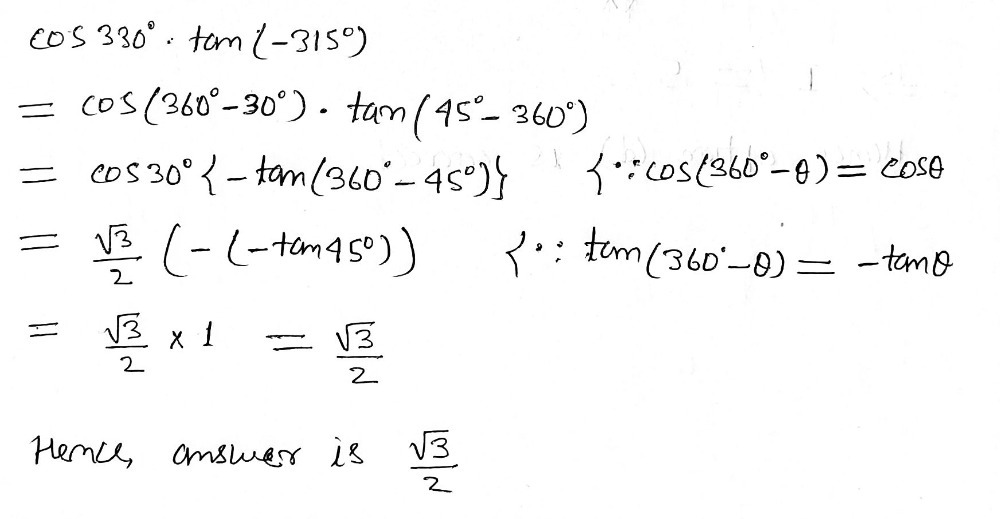 cos 330° · tan (-315°)
= cos (360° - 30°) · tan (45° - 360°)
= cos 30° { - tan (360° - 45°)} { ∵ cos (360° - θ) = cos θ
= √3/2 ( - ( - tan 45°)) { ∵ tan (360° - θ) = - tan θ
= √3/2 × 1 = √3/2
Hence, answer is √3/2